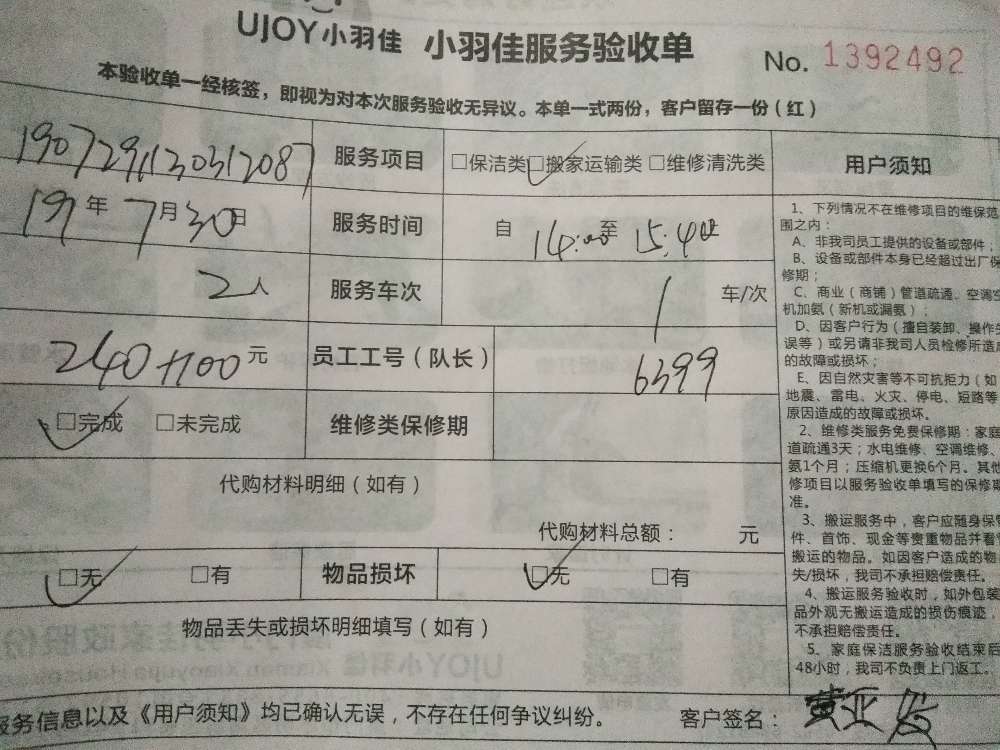 UJOY小羽佳 小羽佳服务验收单 No. 1392492
本验收单一经核签，即视为对本次服务验收无异议。本单一式两份，客户留存一份（红）
服务项目 □保洁类 □搬家运输类 □维修清洗类
19年7月30日 服务时间 自 14:00 至 15:40
2人 服务车次 1 车/次
240+100元 员工工号（队长） 6399
□完成 □未完成 维修类保修期
代购材料明细（如有）
代购材料总额： 元
□无 □有 物品损坏 □无 □有
物品丢失或损坏明细填写（如有）
服务信息以及《用户须知》均已确认无误，不存在任何争议纠纷。 客户签名： 黄亚
用户须知
1、下列情况不在维修项目的维保范
围之内：
A、非我司员工提供的设备或部件；
B、设备或部件本身已经超过出厂保
修期；
C、商业（商铺）管道疏通、空调空
机加氨（新机或漏氨）；
D、因客户行为（擅自装卸、操作失
误等）或另请非我司人员检修所造成
的故障或损坏；
E、因自然灾害等不可抗拒力（如
地震、雷电、火灾、停电、短路等
原因造成的故障或损坏。
2、维修类服务免费保修期：家庭
道疏通3天；水电维修、空调维修、
氨1个月；压缩机更换6个月。其他
修项目以服务验收单填写的保修期
准。
3、搬运服务中，客户应随身保管
件、首饰、现金等贵重物品并看管
搬运的物品。如因客户造成的物
失/损坏，我司不承担赔偿责任。
4、搬运服务验收时，如外包装
品外观无搬运造成的损伤痕迹，
不承担赔偿责任。
5、家庭保洁服务验收结束后
48小时，我司不负责上门返工。